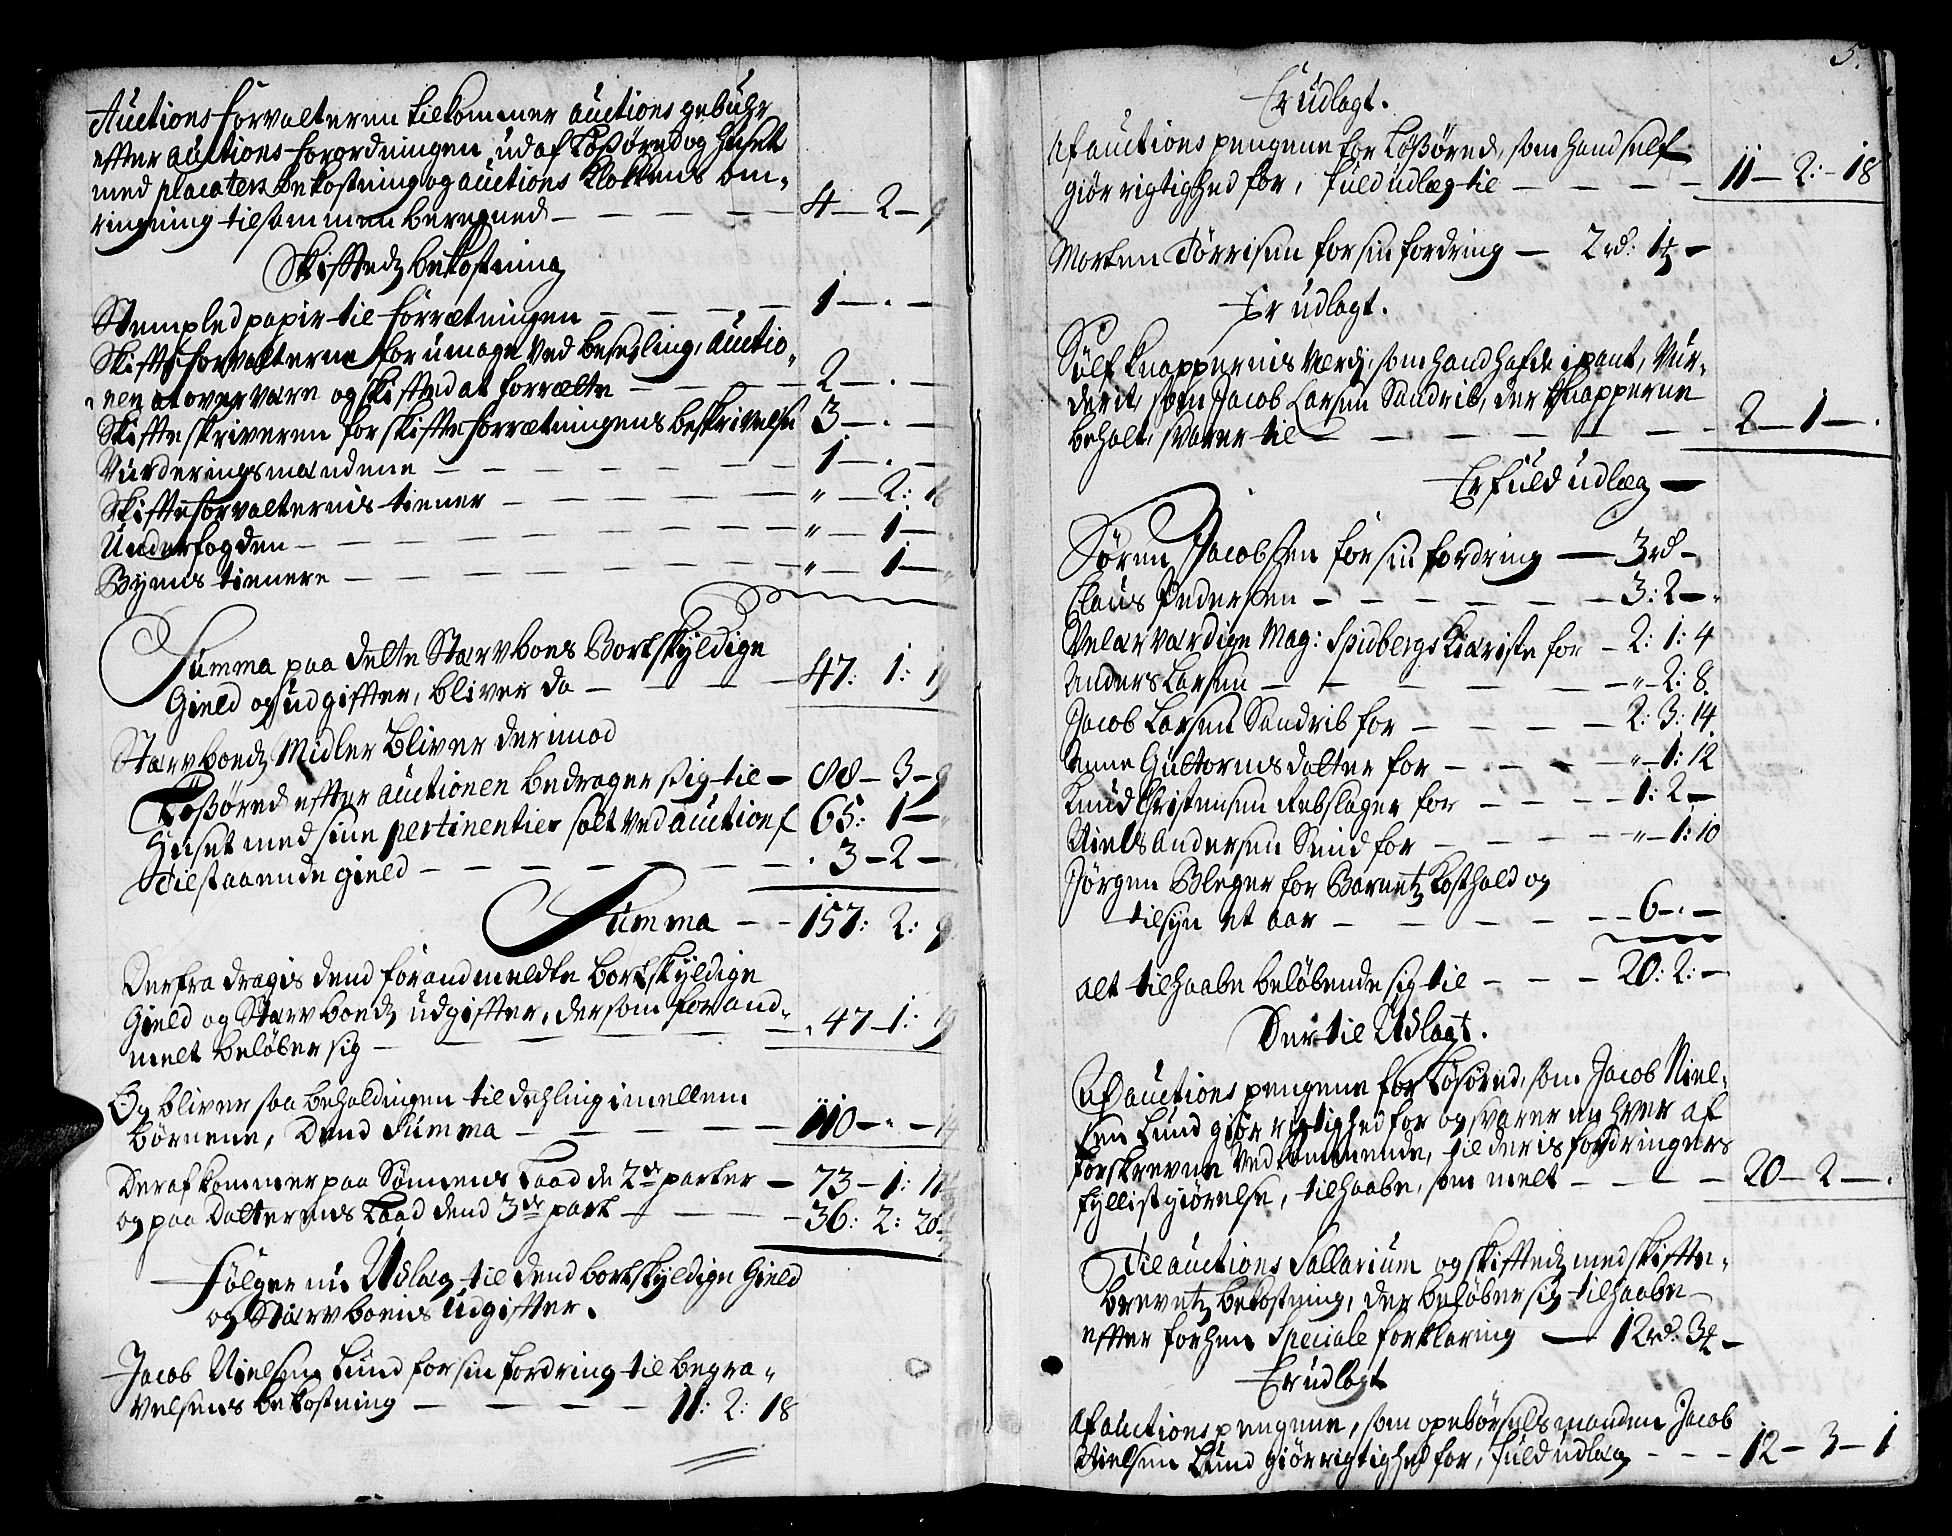 Auctions forvalteren tilkommer auctions gebuhr
effter auctions forordningen, ud af Lößöred og huset
med placaters bekostning og auctions klokkens om,
ringning tilsammen beregned — 4 — 2 — 9
Skifftedz bekostning
Stempled papir til forrætningen — 1 — . —
Skiffteforvalterne for umage ved besegling, auctio,
nen at overvære og skiffted at forrætte — 2 — . —
Skiffteskriveren for skiffteforrætningens beskrivelse 3 — . —
Vurderingsmændene — 1 — . —
Skiffteforvalternis tiener — " — 2: 16
Underfogden — " — 1 —
Byens tienere — " — 1 —
Summa paa dette Stervboes Bortskyldige
Gield og udgiffter, bliver da — 47: 1: 19
Stervboedz Midler bliver derimod
Lößöred effter auctionen bedrager sig til — 88 — 3 — 9
Huset med sine pertinentier solt ved auction f 65: 1 —
Tilstaaende gield — 3 — 2 —
Summa — 157: 2: 9
Derfra dragis dend forandmeldte bortskyldige
Gield og Stervboedz udgiffter, der som forand,
melt beløber sig — 47 — 1: 19
Og bliver saa beholdningen til dehling imellem
børnene, Dend Summa — 110 — " — 14
Deraf kommer paa Sønnens Laad de 2de parter — 73 — 1: 1
og paa Datterens Laad dend 3de part — 36: 2: 20
Følger nu Udlæg til dend bortskyldige Gield
og Stervboens Udgiffter.
Jacob Nielsen Lund for sin fordring til begra,
velsens bekostning — 11: 2: 18
5.
Er udlagt.
Af auctions pengene for Lößöred, som hand self
giör rigtighed for, fuld udlæg til — 11 — 2: — 18
Morten Törrisen for sin fordring — 2 rd: 1 ƶ —
Er udlagt.
Sölf knappernis værdj, som hand hafde i pant, Vur,
derit, som Jacob Larsen Sandrib, der knapperne
beholt, svarer til — 2 — 1 — .
Er fuld udlæg —
Sören Jacobsen for sin fordring — 3 rd —
Claus Pedersen — 3: 2 —
Velærværdige Mag: Spidbergs Kiæriste for — 2: 1: 4
Anders Larsen — " 2: 8.
Jacob Larsen Sandrib for — 2: 3: 14
Anne Guttormsdatter for — " — 1: 12
Knud Christensen Rebslager for — 1: 2 —
Niels Andersen Smid for — " — 1: 10
Jörgen Bleger for Barnetz kosthold og
tilsyn et aar — 6 — . —
alt tilhaabe beløbende sig til — 20: 2: —
Dertil Udlagt.
Af auctions pengene for Lösöred, som Jacob Niel,
sen Lund giör rigtighed for og svarer en hver af
forskrevne Vedkommende, til deris fordringers
fyllistgiörelse, tilhaabe, som melt — 20 — 2 — .
Til auctions Sallarium og skifftedz med skiffte,
brevetz bekostning, der beløber sig tilhaabe
effter forhen Speciale forklaring — 12 rd: 3 ƶ —
Er udlagt
Af auctions pengene, som opebörselsmanden Jacob
Nielsen Lund giör rigtighed for, fuld udlæg — 12 — 3 — 1